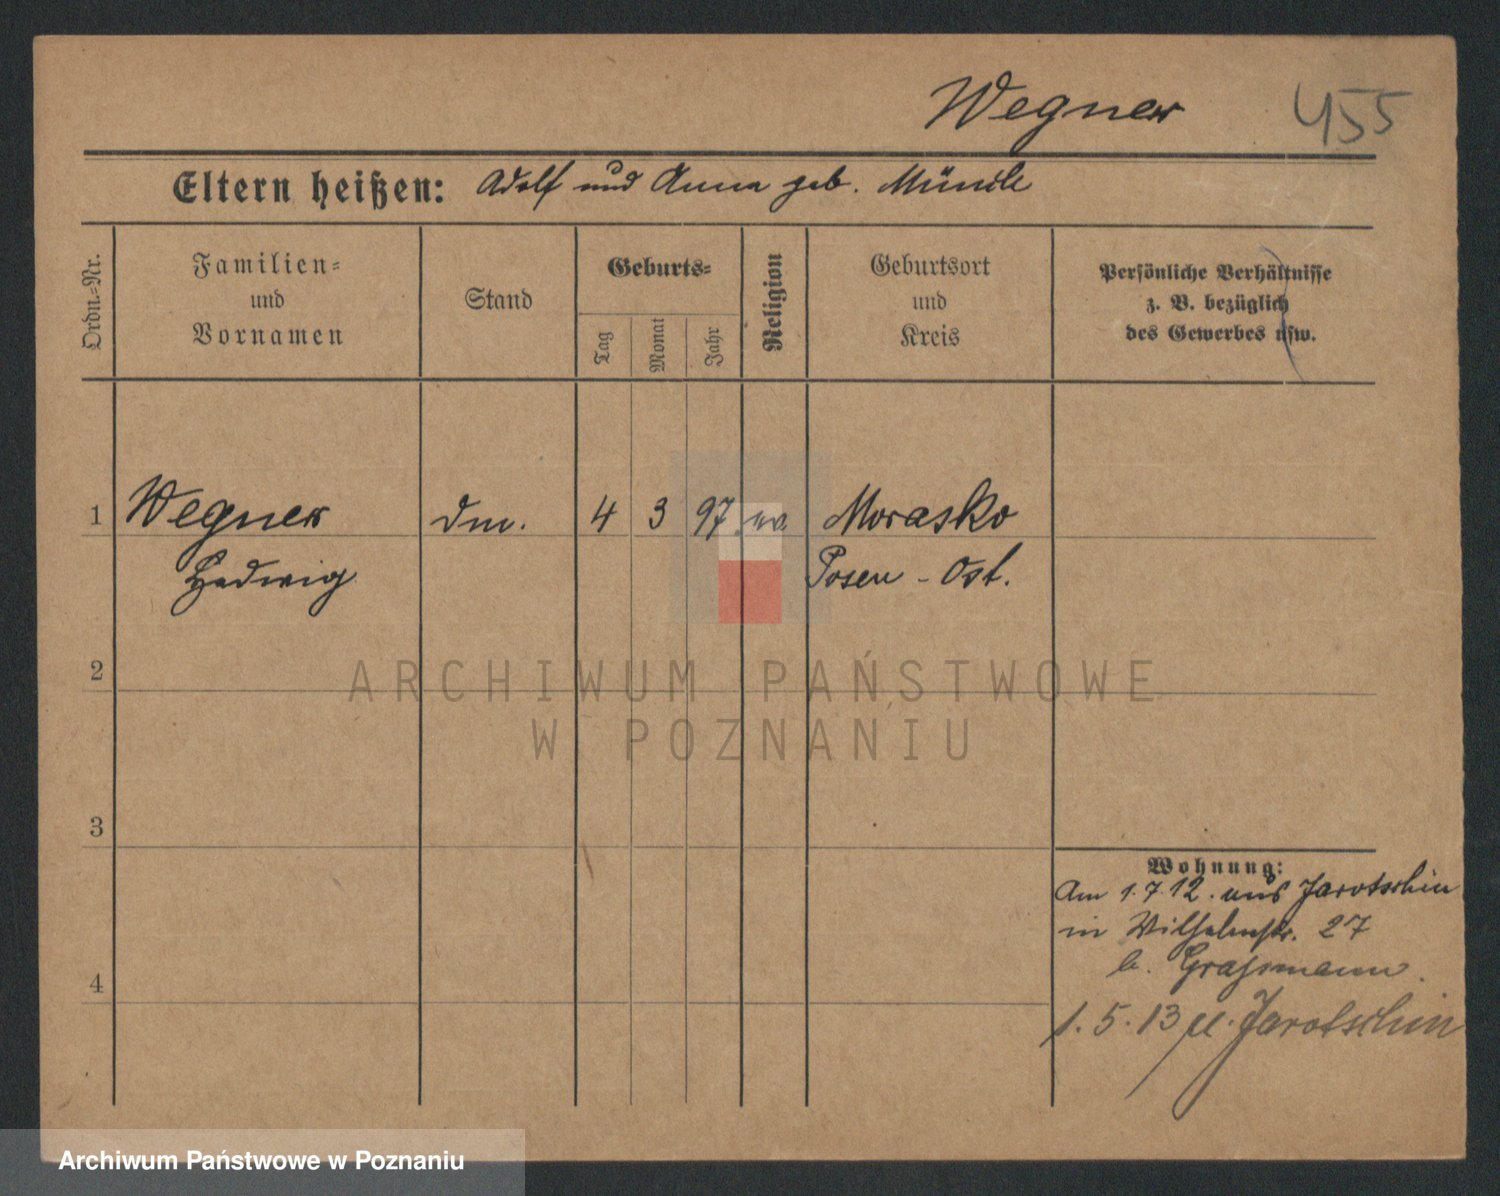 Wegner 455
Eltern heißen: Adolf und Anna geb.
Ordn.-Nr.
Familien-
und
Vornamen
Stand
Geburts-
Tag
Monat
Jahr
Religion
Geburtsort
und
Kreis
Persönliche Verhältnisse
z. B. bezüglich
des Gewerbes usw.
1 Wegner dm. 4 3 97 ev. Morasko
Hedwig Posen - Ost.
2
ARCHIWUM PAŃSTWOWE
W POZNANIU
3
Wohnung:
Am 1.7.12. aus Jarotschin
in Wilhelmstr. 27
b. Graßmann.
4
1.5.13 Jarotschin
Archiwum Państwowe w Poznaniu